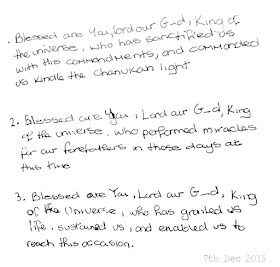 . Blessed are You, lord our G-d, King of
the universe, who has sanctified us
with this commandments, and commanded
us kindle the chanukah light
2. Blessed are You, Lord our G-d, King
of the universe, who peformed miracles
for our forefathers in those days at
this time
3. Blessed are You, Lord our G-d, King
of the Universe, who has granted us
life, sustained us, and enabled us to
reach this occasion.
7th Dec 2015